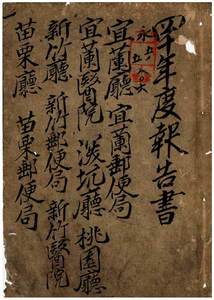 四年度報告書
宜蘭廳 宜蘭郵便局
宜蘭醫院 深坑廳 桃園廳
新竹廳 新竹郵便局 新竹醫院
苗栗廳 苗栗郵便局